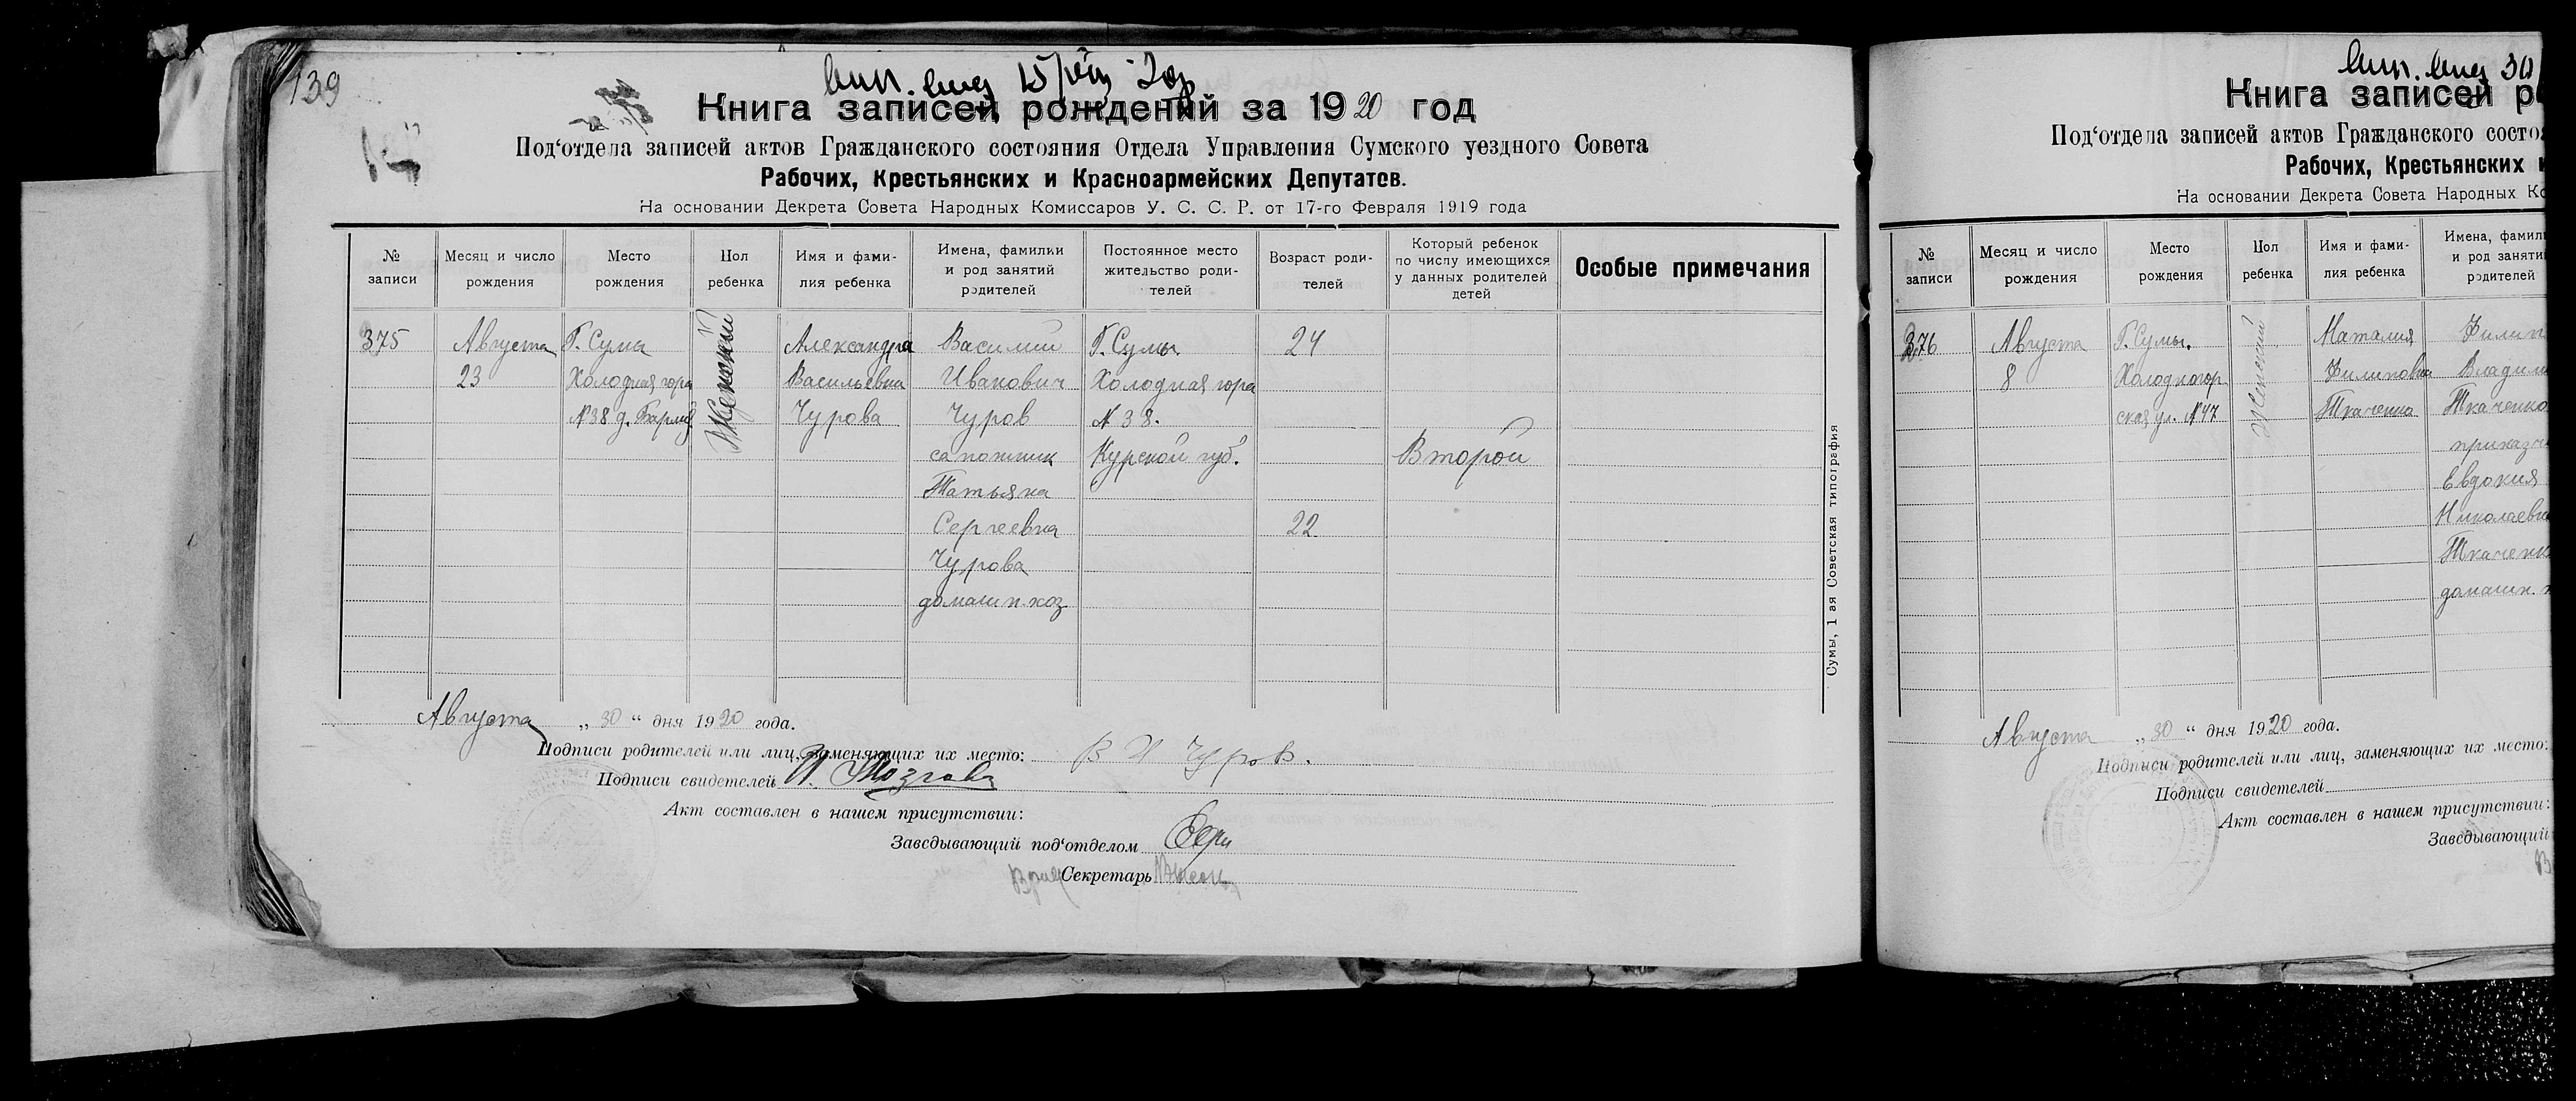 139
Книга записей рождений за 1920 год
Под‘отдела записей актов Гражданского состояния Отдела Управления Сумского уездного Совета
Рабочих, Крестьянских и Красноармейских Депутатов.
На основании Декрета Совета Народных Комиссаров У. С. С. Р. от 17-го Февраля 1919 года
№ записи
Месяц и число рождения
Место рождения
Пол ребенка
Имя и фами-
лия ребенка
Имена, фамилии
и род занятий
родителей
Постоянное место
жительство роди-
телей
Возраст роди-
телей
Который ребенок
по числу имеющихся
у данных родителей
детей
Особые примечания
375
Августа
23
Г. Сумы
Холодная гора
№38 д.
Женский
Александра
Васильевна
Чурова
Василий
Иванович
Чуров
сапожник
Татьяна
Сергеевна
Чурова
домашн. хоз.
Г. Сумы.
Холодная гора
№ 38.
Курской губ.
24
22
Второй
Сумы, 1 ая Советская типография
Августа „30“ дня 1920 года.
Подписи родителей или лиц, заменяющих их место: В И Чуров.
Подписи свидетелей
Акт составлен в нашем присутствии:
Заведывающий под‘отделом
Секретарь
Книга записей р
Под‘отдела записей актов Гражданского состо
Рабочих, Крестьянских и
На основании Декрета Совета Народных Ко
№ записи
Месяц и число
рождения
Место
рождения
Пол
ребенка
Имя и фами-
лия ребенка
Имена, фамил
и род заняти
родителей
376
Августа
8
Г. Сумы.
Холодногор
ская ул. №47
Женский
Наталия
Филиповна
Ткаченко
Филип
Владим
Ткаченко
приказч
Евдокия
Николаевна
Ткаченко
домашн.
Августа „30“ дня 1920 года.
Подписи родителей или лиц, заменяющих их место:
Подписи свидетелей
Акт составлен в нашем присутствии:
Заведывающий